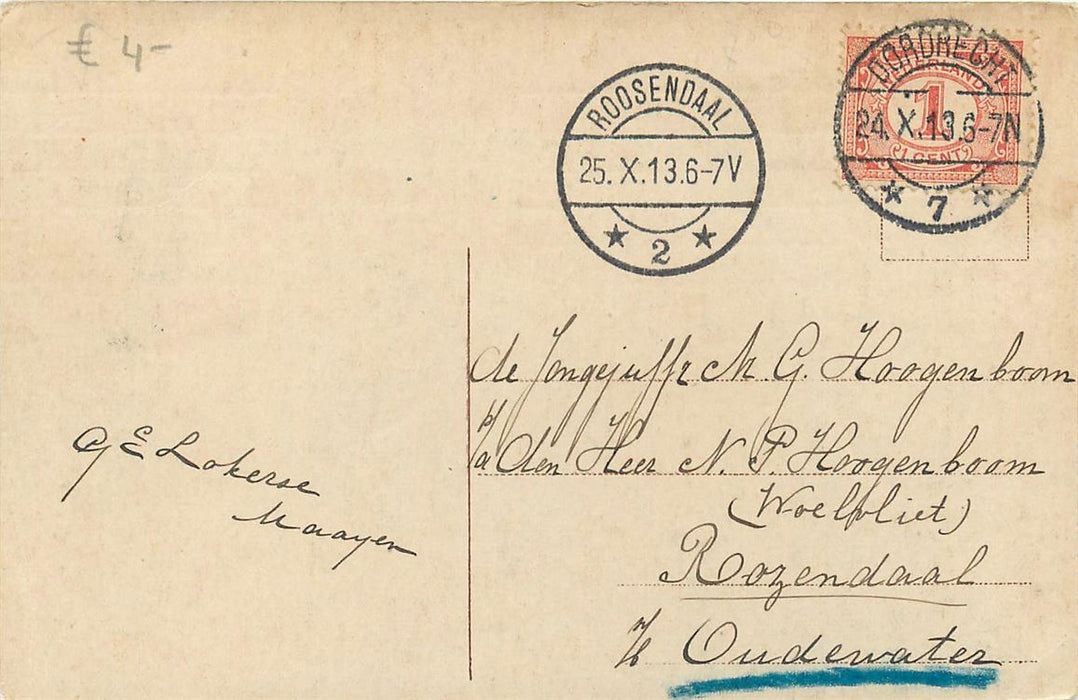 € 4-
ROOSENDAAL
25.X.13.6-7V
2
DORDRECHT
NEDERLAND
1
24.X.13.6-7N
1 CENT
7
de Jongejuffr M. G. Hoogenboom
p/a den Heer N. P. Hoogenboom
(Woelvliet)
Rozendaal
Oudewater
G E Lokerse
Maayen